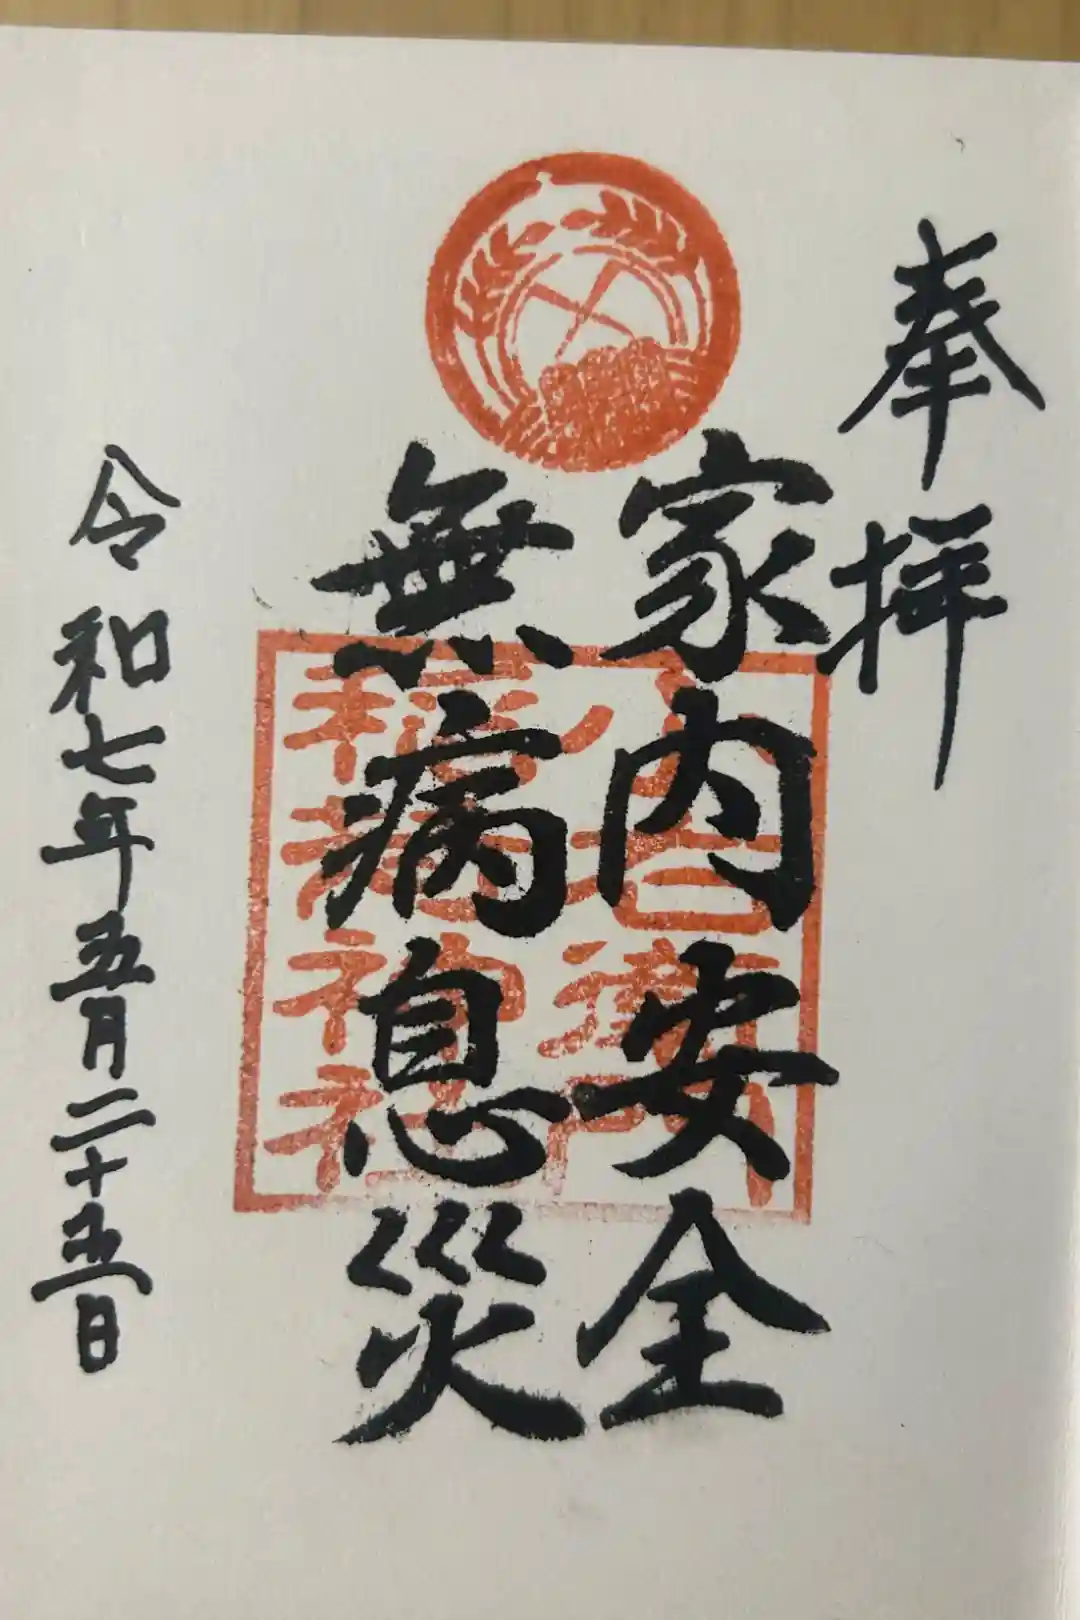 奉拝
家内安全
無病息災
令和七年五月二十五日
稲荷神社